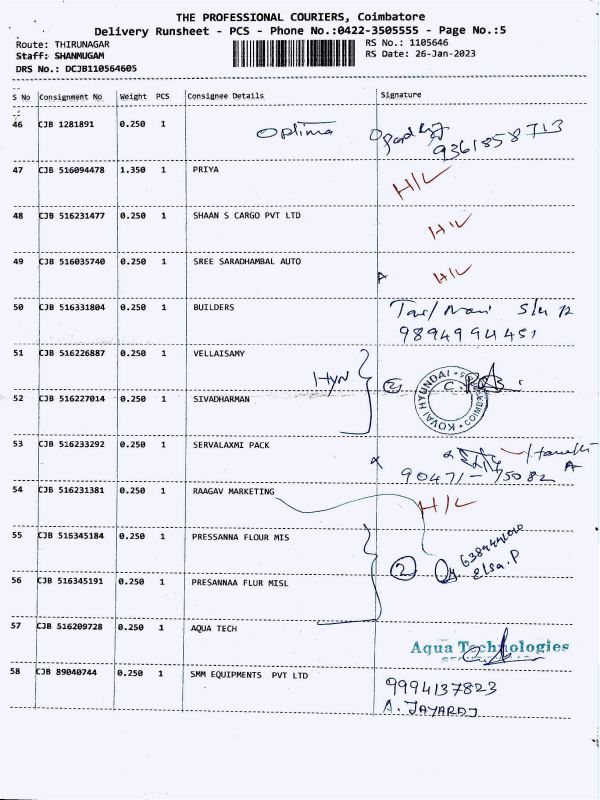 THE PROFESSIONAL COURIERS, Coimbatore
Delivery Runsheet - PCS - Phone No.:0422-3505555 - Page No.:5
Route: THIRUNAGAR
RS No.: 1105646
Staff: SHANMUGAM
RS Date: 26-Jan-2023
DRS No.: DCJB110564605
S No Consignment No Weight PCS Consignee Details Signature
46 CJB 1281891 0.250 1 Optima
9361858713
47 CJB 516094478 1.350 1 PRIYA H/L
48 CJB 516231477 0.250 1 SHAAN S CARGO PVT LTD H/L
49 CJB 516035740 0.250 1 SREE SARADHAMBAL AUTO H/L
50 CJB 516331804 0.250 1 BUILDERS
9894994451
51 CJB 516226887 0.250 1 VELLAISAMY
Hyn
KOVAI HYUNDAI
52 CJB 516227014 0.250 1 SIVADHARMAN
53 CJB 516233292 0.250 1 SERVALAXMI PACK
90471-75082
54 CJB 516231381 0.250 1 RAAGAV MARKETING H/L
55 CJB 516345184 0.250 1 PRESSANNA FLOUR MIS
2
Elsa.P
56 CJB 516345191 0.250 1 PRESANNAA FLUR MISL
57 CJB 516209728 0.250 1 AQUA TECH
Aqua Technologies
58 CJB 89040744 0.250 1 SMM EQUIPMENTS PVT LTD
9994137823
A. JAYARAJ